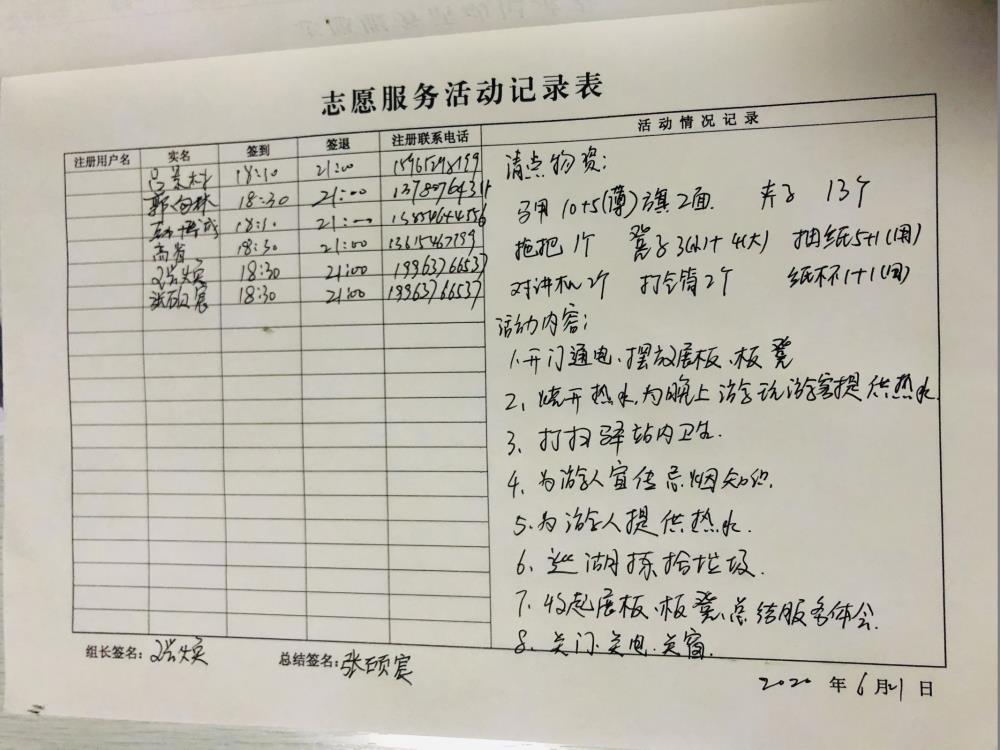 志愿服务活动记录表
注册用户名 实名 签到 签退 注册联系电话 活动情况记录
18:10 21:00
18:30 21:00
18:10 21:00
高省 18:30 21:00 13615467799
18:30 21:00 19963766537
张硕宸 18:30 21:00 19963766537
清点物资:
马甲10+5(薄) 旗2面 夹子 13个
拖把1个 凳子3(小)+4(大) 抽纸5+1(用)
对讲机2个 打气筒2个 纸杯1+1(用)
活动内容:
1.开门通电、摆放展板、板凳
2、烧开热水,为晚上游玩游客提供热水.
3、打扫驿站内卫生.
4、为游人宣传忌烟知识.
5.为游人提供热水.
6、巡湖捡拾垃圾.
7、收起展板、板凳、总结服务体会.
8、关门.关电.关窗.
组长签名: 总结签名:张硕宸
2020年6月21日